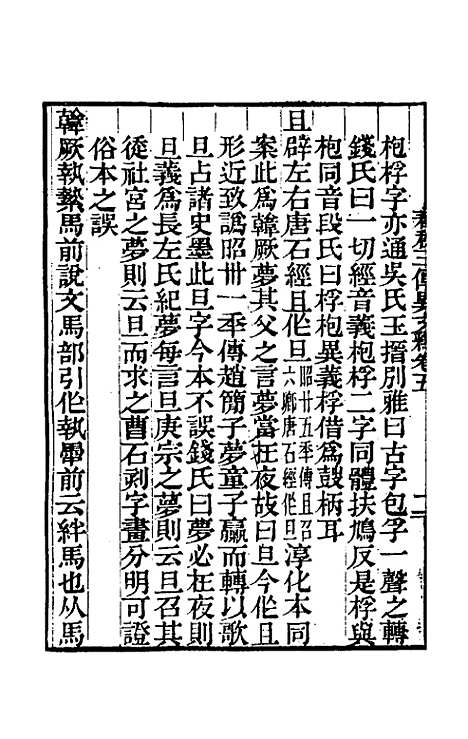 春秋三傳異文釋卷五
枹桴字亦通吳氏玉搢別雅曰古字包孚一聲之轉
錢氏曰一切經音義枹桴二字同體扶鳩反是桴與
枹同音段氏曰桴枹異義桴借爲鼓柄耳
且辟左右唐石經且作旦昭廿五年傳且召六卿唐石經作旦淳化本同
案此爲韓厥夢其父之言夢當在夜故曰旦今作且
形近致譌昭卅一年傳趙簡子夢童子羸而轉以歌
旦占諸史墨此旦字今本不誤錢氏曰夢必在夜則
旦義爲長左氏紀夢每言旦庚宗之夢則云旦召其
徒社宮之夢則云旦而求之曹石刻字畫分明可證
俗本之誤
韓厥執縶馬前說文馬部引作執馽前云絆馬也从馬